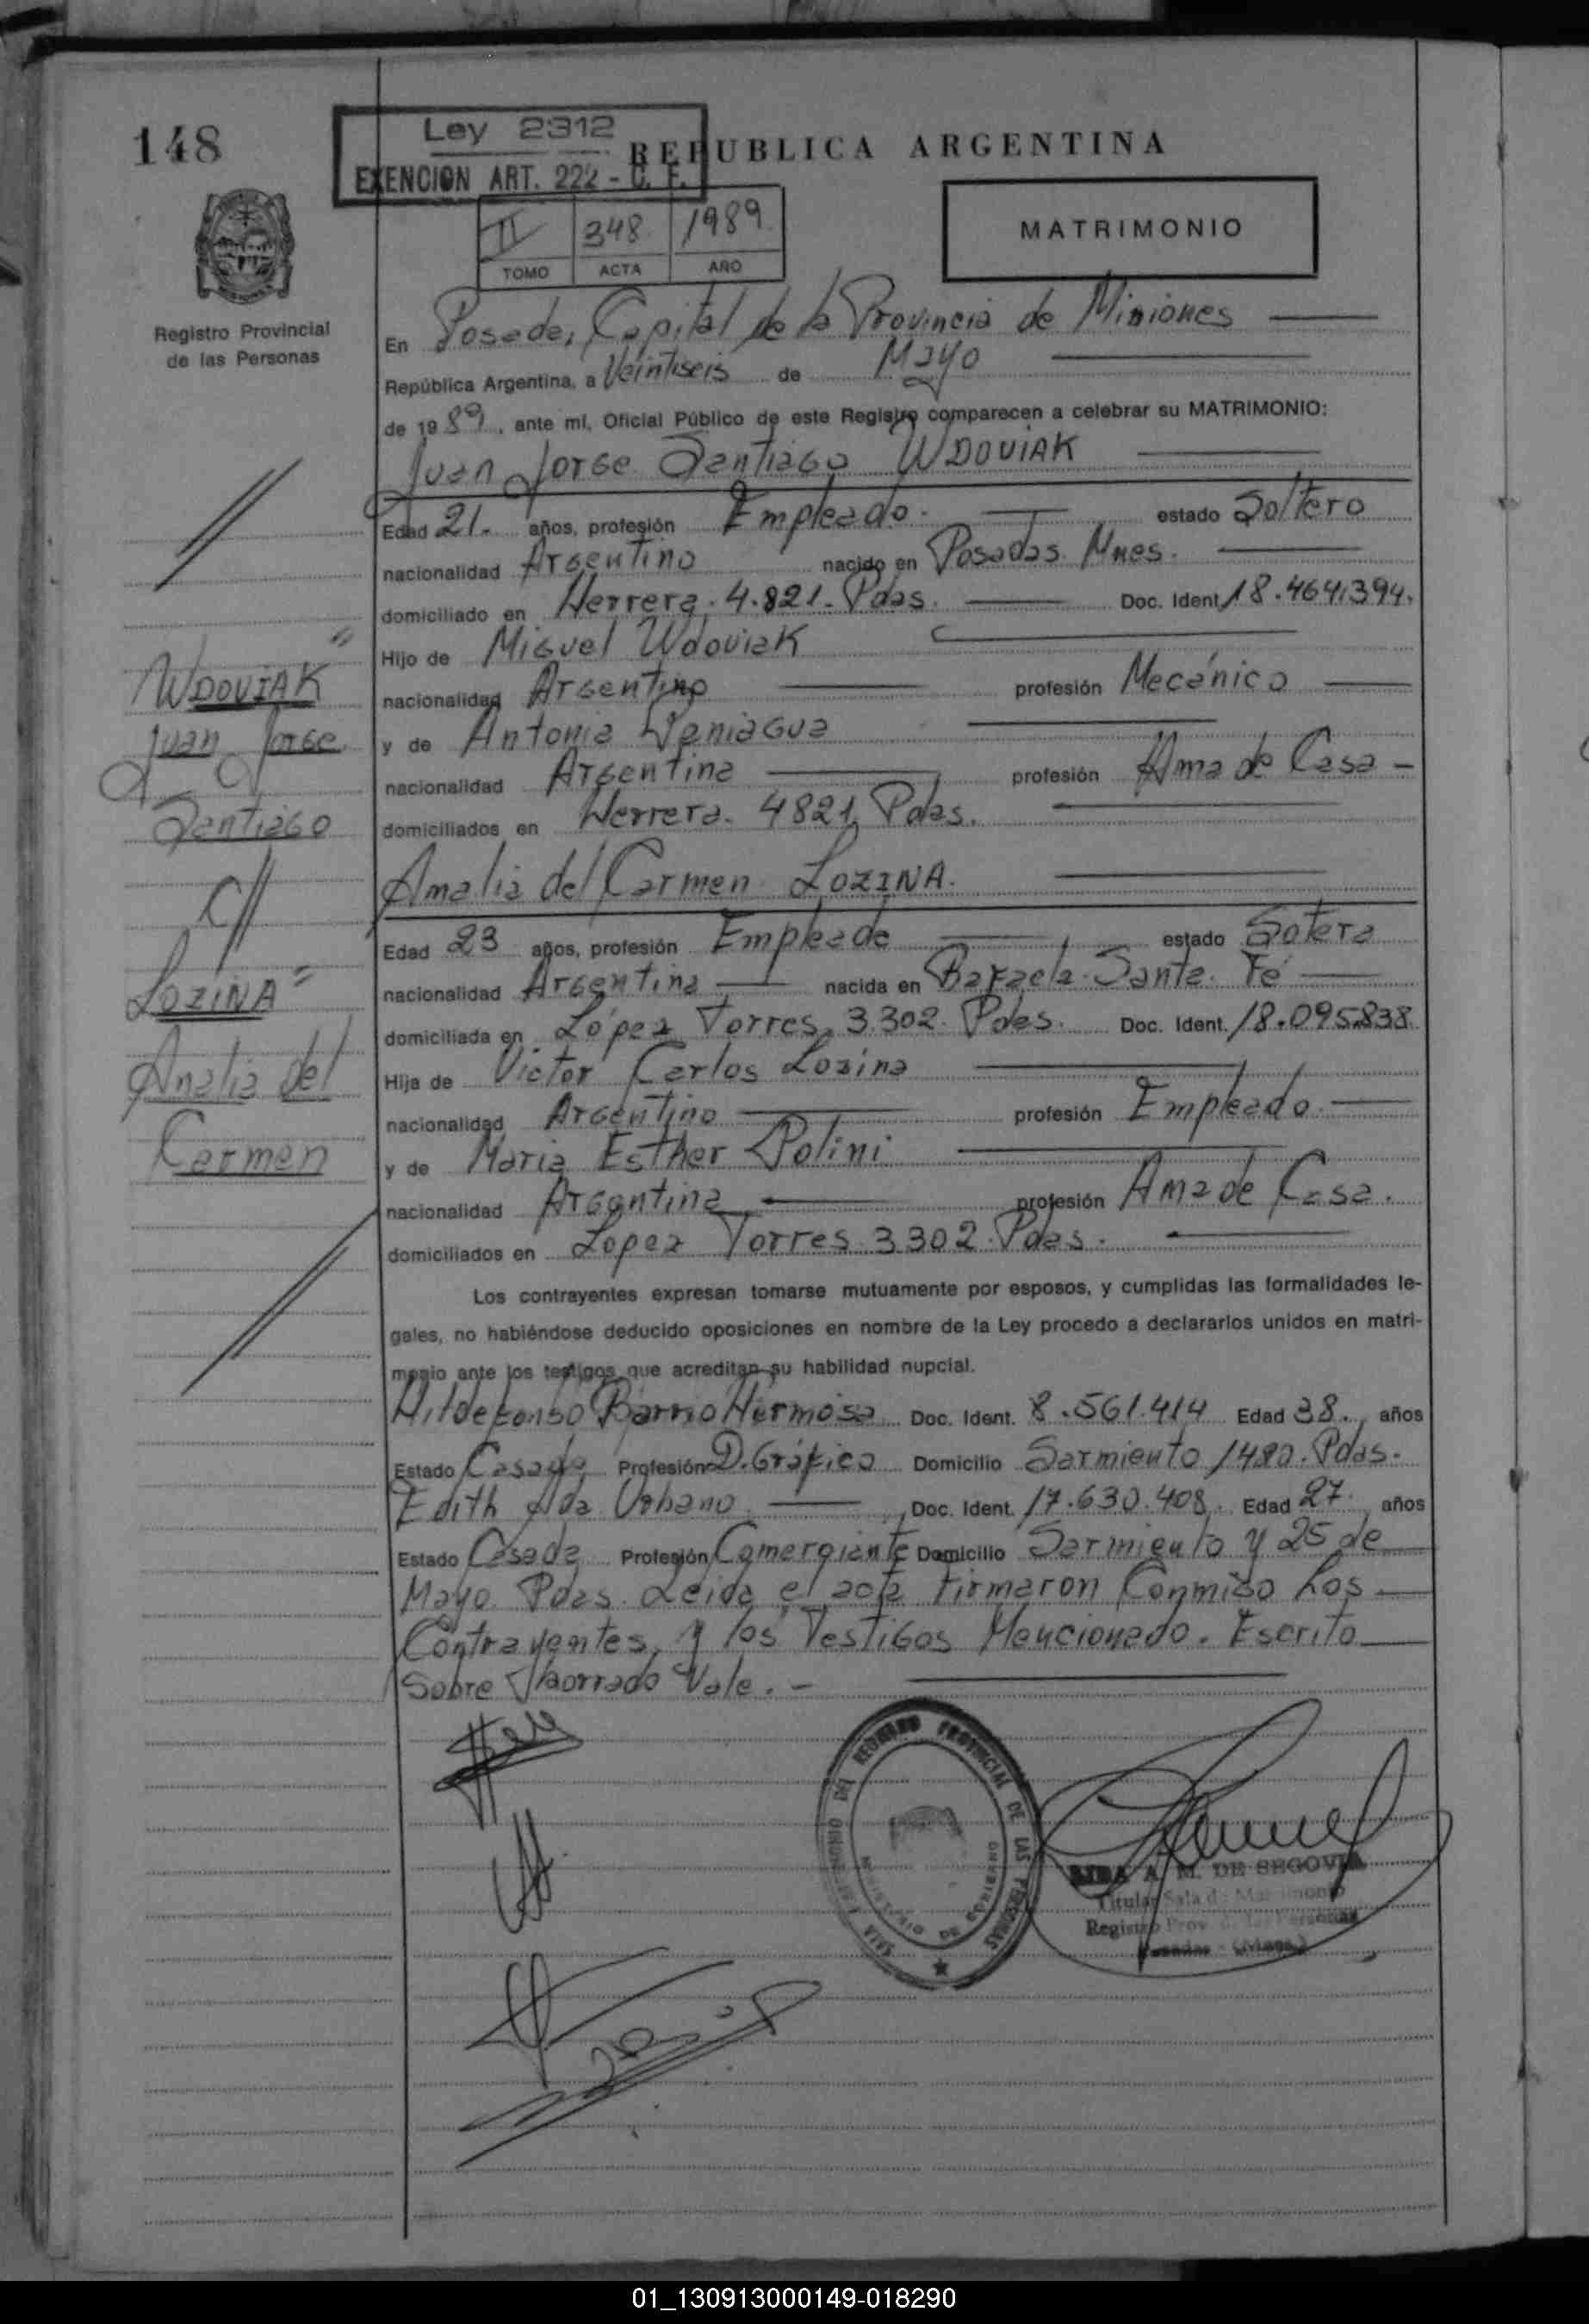 148
Ley 2312
EXENCION ART. 222 - C. F.
REPUBLICA ARGENTINA
II 348 1989
TOMO ACTA AÑO
MATRIMONIO
Registro Provincial
de las Personas
En Posadas, Capital de la Provincia de Misiones
República Argentina, a Veintiseis de Mayo
de 1989, ante mí, Oficial Público de este Registro comparecen a celebrar su MATRIMONIO:
Juan Jorge Santiago WDOVIAK
Edad 21. años, profesión Empleado. estado Soltero
nacionalidad Argentino nacido en Posadas Mnes.
domiciliado en Herrera. 4.821. Pdas. Doc. Ident. 18.464.394.
Hijo de Miguel Wdoviak
nacionalidad Argentino profesión Mecánico
y de Antonia Paniagua
nacionalidad Argentina profesión Ama de Casa
domiciliados en Herrera. 4821. Pdas.
Amalia del Carmen LOZINA.
Edad 23 años, profesión Empleada estado Sotera
nacionalidad Argentina nacida en Rafaela. Santa Fé
domiciliada en López Torres, 3.302. Pdas. Doc. Ident. 18.095838
Hija de Victor Carlos Lozina
nacionalidad Argentino profesión Empleado.
y de Maria Esther Polini
nacionalidad Argentina profesión Ama de Casa.
domiciliados en Lopez Torres 3302. Pdas.
WDOVIAK
Juan Jorge
Santiago
C//
LOZINA
Analia del
Carmen
Los contrayentes expresan tomarse mutuamente por esposos, y cumplidas las formalidades le-
gales, no habiéndose deducido oposiciones en nombre de la Ley procedo a declararlos unidos en matri-
monio ante los testigos que acreditan su habilidad nupcial.
Hildefonso Barrio Hermosa Doc. Ident. 8.561.414 Edad 38. años
Estado Casado Profesión D. Gráfico Domicilio Sarmiento 1480. Pdas.
Edith Ada Urbano Doc. Ident. 17.630.408. Edad 27. años
Estado Casada Profesión Comerciante Domicilio Sarmiento y 25 de
Mayo. Pdas. Leida el acta Firmaron Conmigo Los
Contrayentes, y los Testigos Mencionado. Escrito
Sobre borrado Vale. -
REGISTRO PROVINCIAL DE LAS PERSONAS
MINISTERIO DE GOBIERNO
A. M. DE SEGOVIA
Titular Sala de Matrimonio
Registro Prov. de las Personas
Posadas - (Mnes.)
01_130913000149-018290